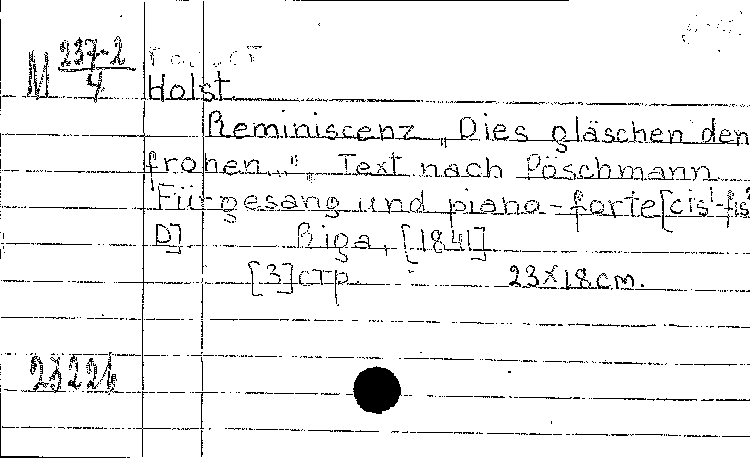 M 237-2
4
Holst
Reminiscenz „Dies gläschen den
frohen..." Text nach Pöschmann
Für gesang und piano-forte [cis¹-fis²
D] Riga, [1841]
[3] стр. 23x18 cm.
23226